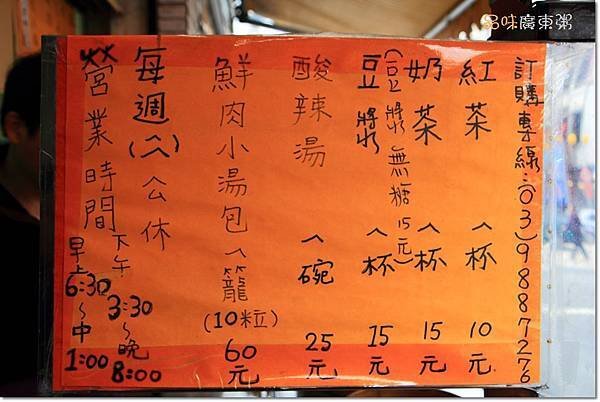 品味廣東粥
訂購專線:(03)9887276
紅茶 一杯 10元
奶茶 一杯 15元
(豆漿無糖15元)
豆漿 一杯 15元
酸辣湯 一碗 25元
鮮肉小湯包一籠(10粒)60元
每週(一)公休
營業時間
下午3:30~晚8:00
早上6:30~中1:00